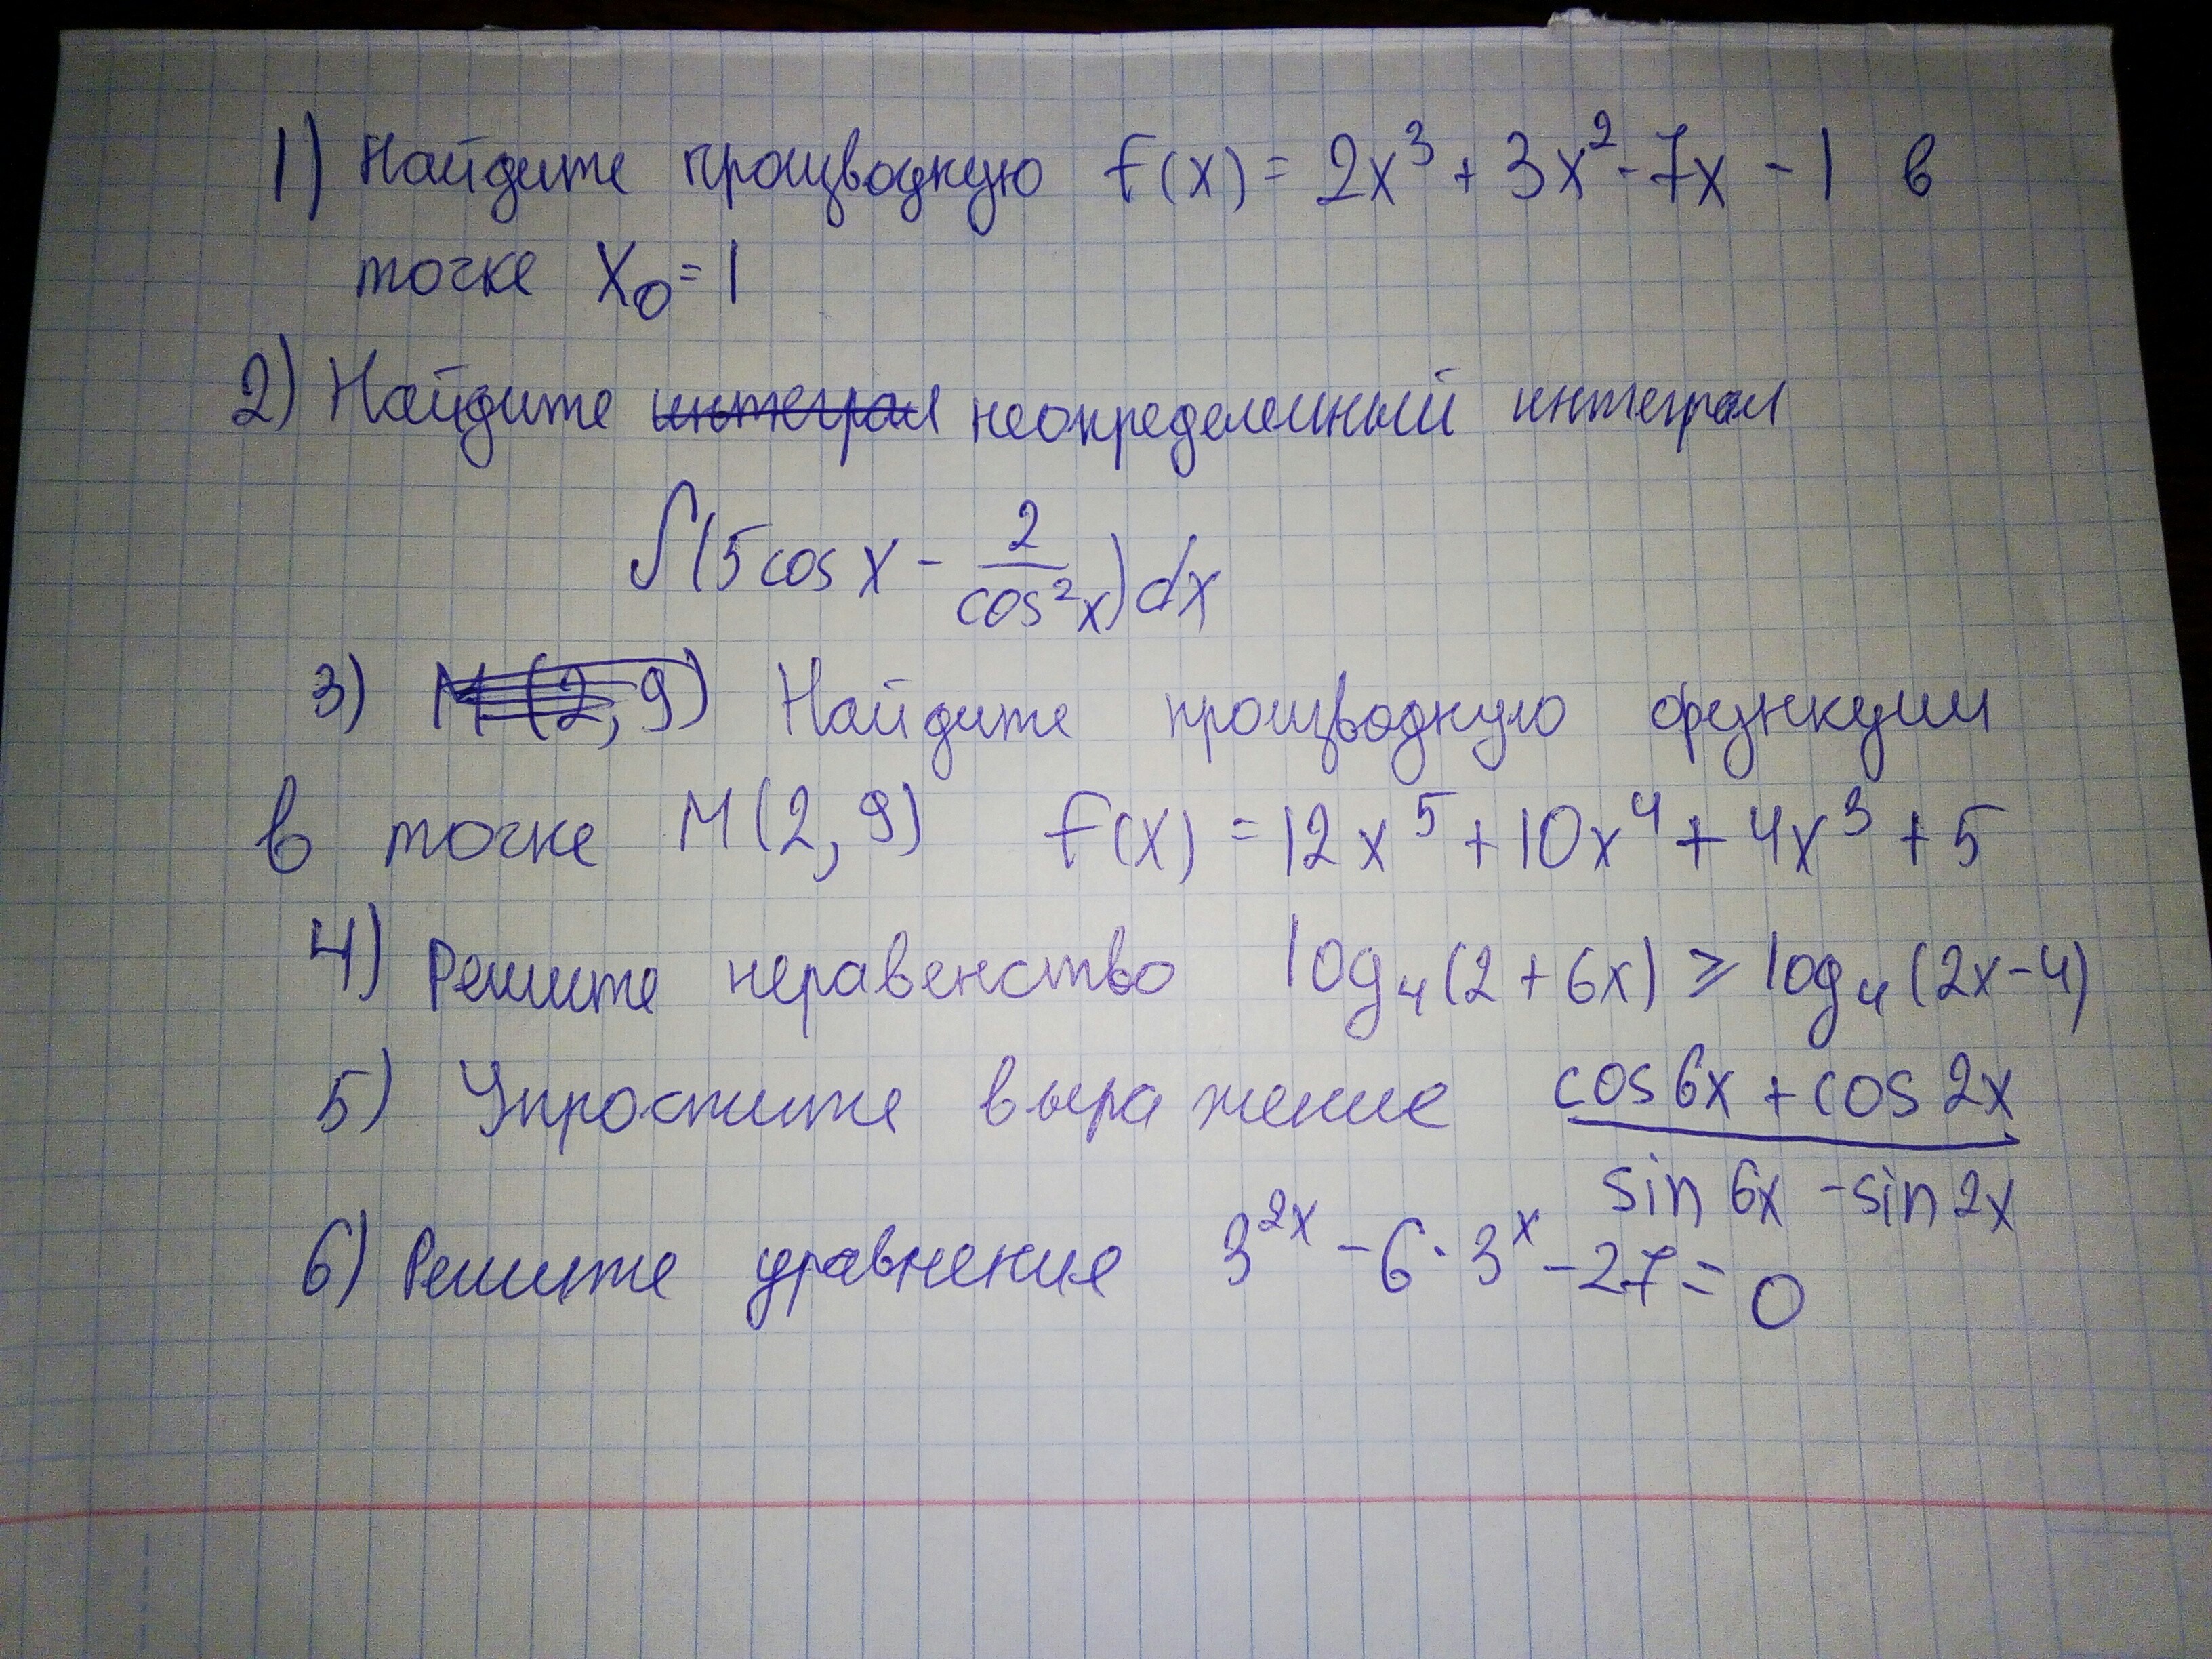 1) Найдите производную f(x) = 2x³ + 3x² - 7x - 1 в
точке x₀ = 1
2) Найдите интеграл неопределенный интеграл
∫(5cos x - 2/cos²x)dx
3) M(2, 9) Найдите производную функции
в точке M(2, 9) f(x) = 12x⁵ + 10x⁴ + 4x³ + 5
4) Решите неравенство log₄(2 + 6x) ≥ log₄(2x - 4)
5) Упростите выражение (cos 6x + cos 2x)/(sin 6x - sin 2x)
6) Решите уравнение 3²ˣ - 6 · 3ˣ - 27 = 0